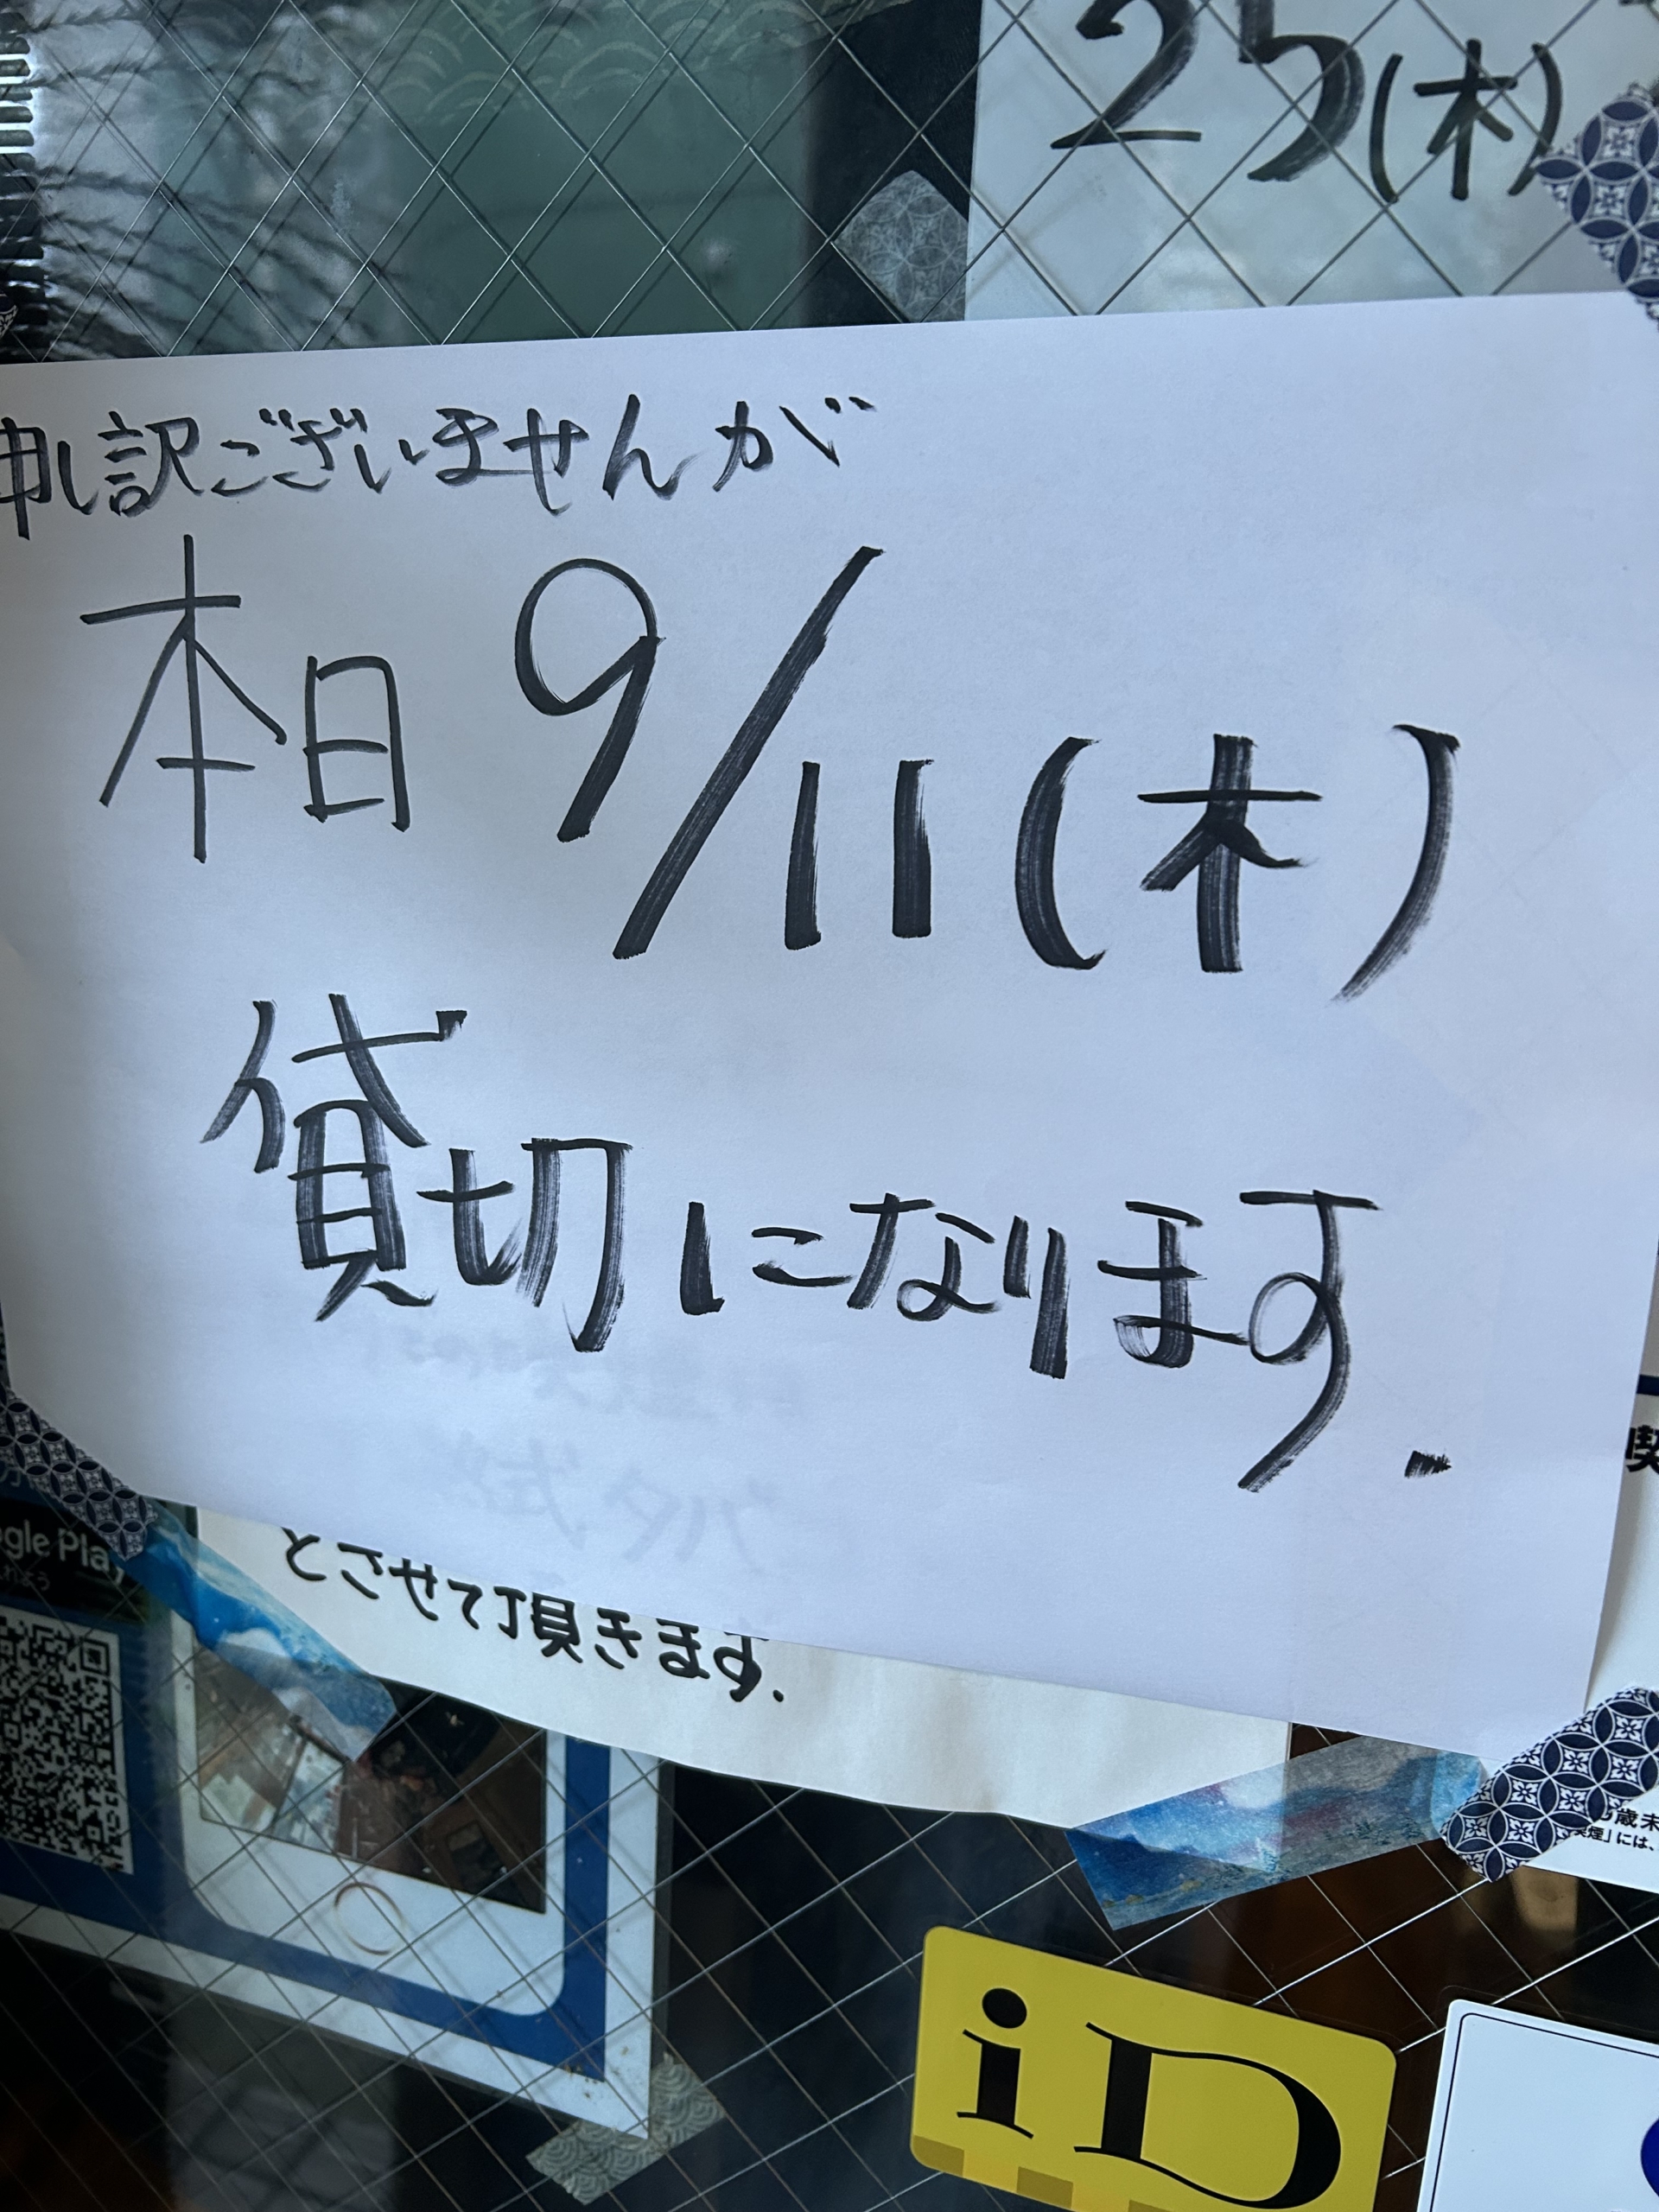 25(木)
申し訳ございませんが
本日 9/11(木)
貸切になります.
とさせて頂きます.
gle Play
喫
歳未
煙」には、
iD